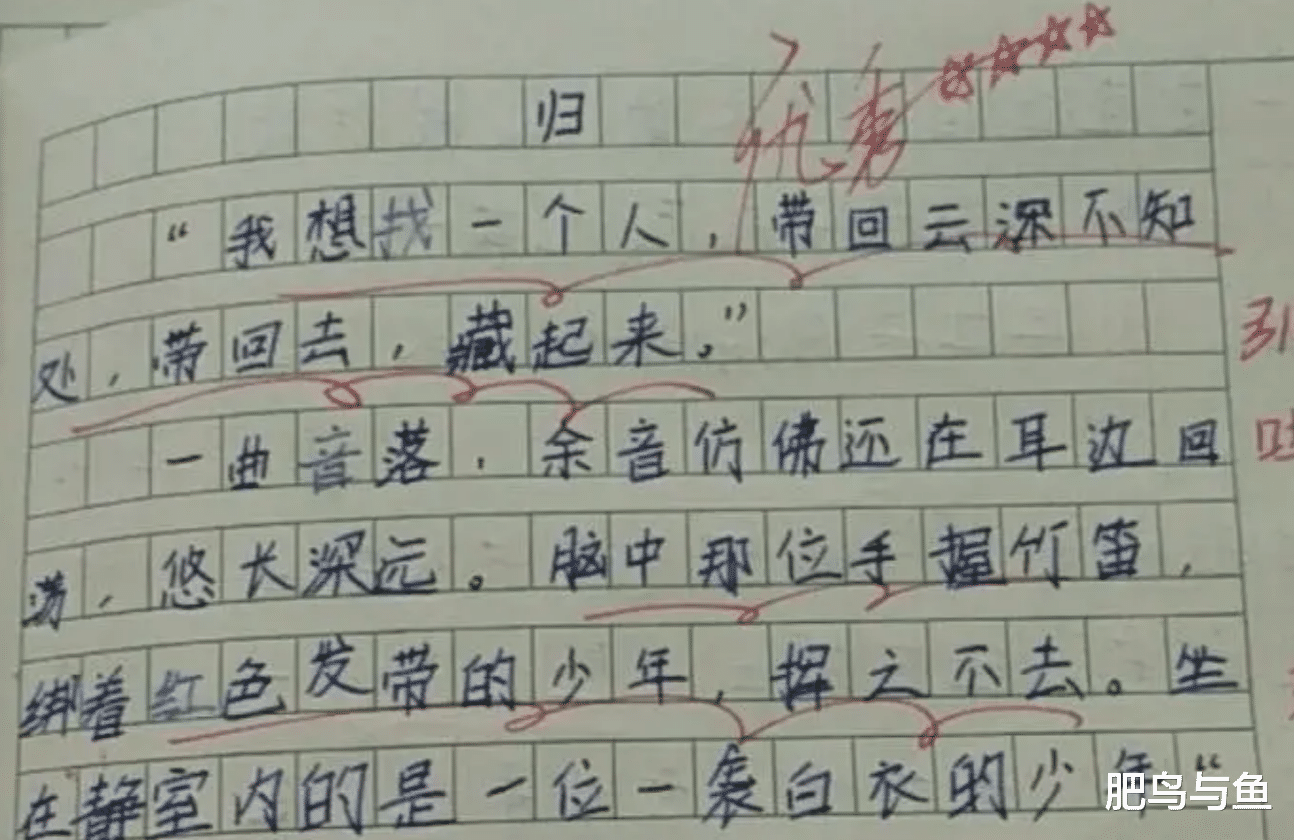 归
优秀
“我想找一个人，带回云深不知
处，带回去，藏起来。”
一曲音落，余音仿佛还在耳边回
荡，悠长深远。脑中那位手握竹笛，
绑着红色发带的少年，挥之不去。坐
在静室内的是一位一袭白衣的少年“
肥鸟与鱼